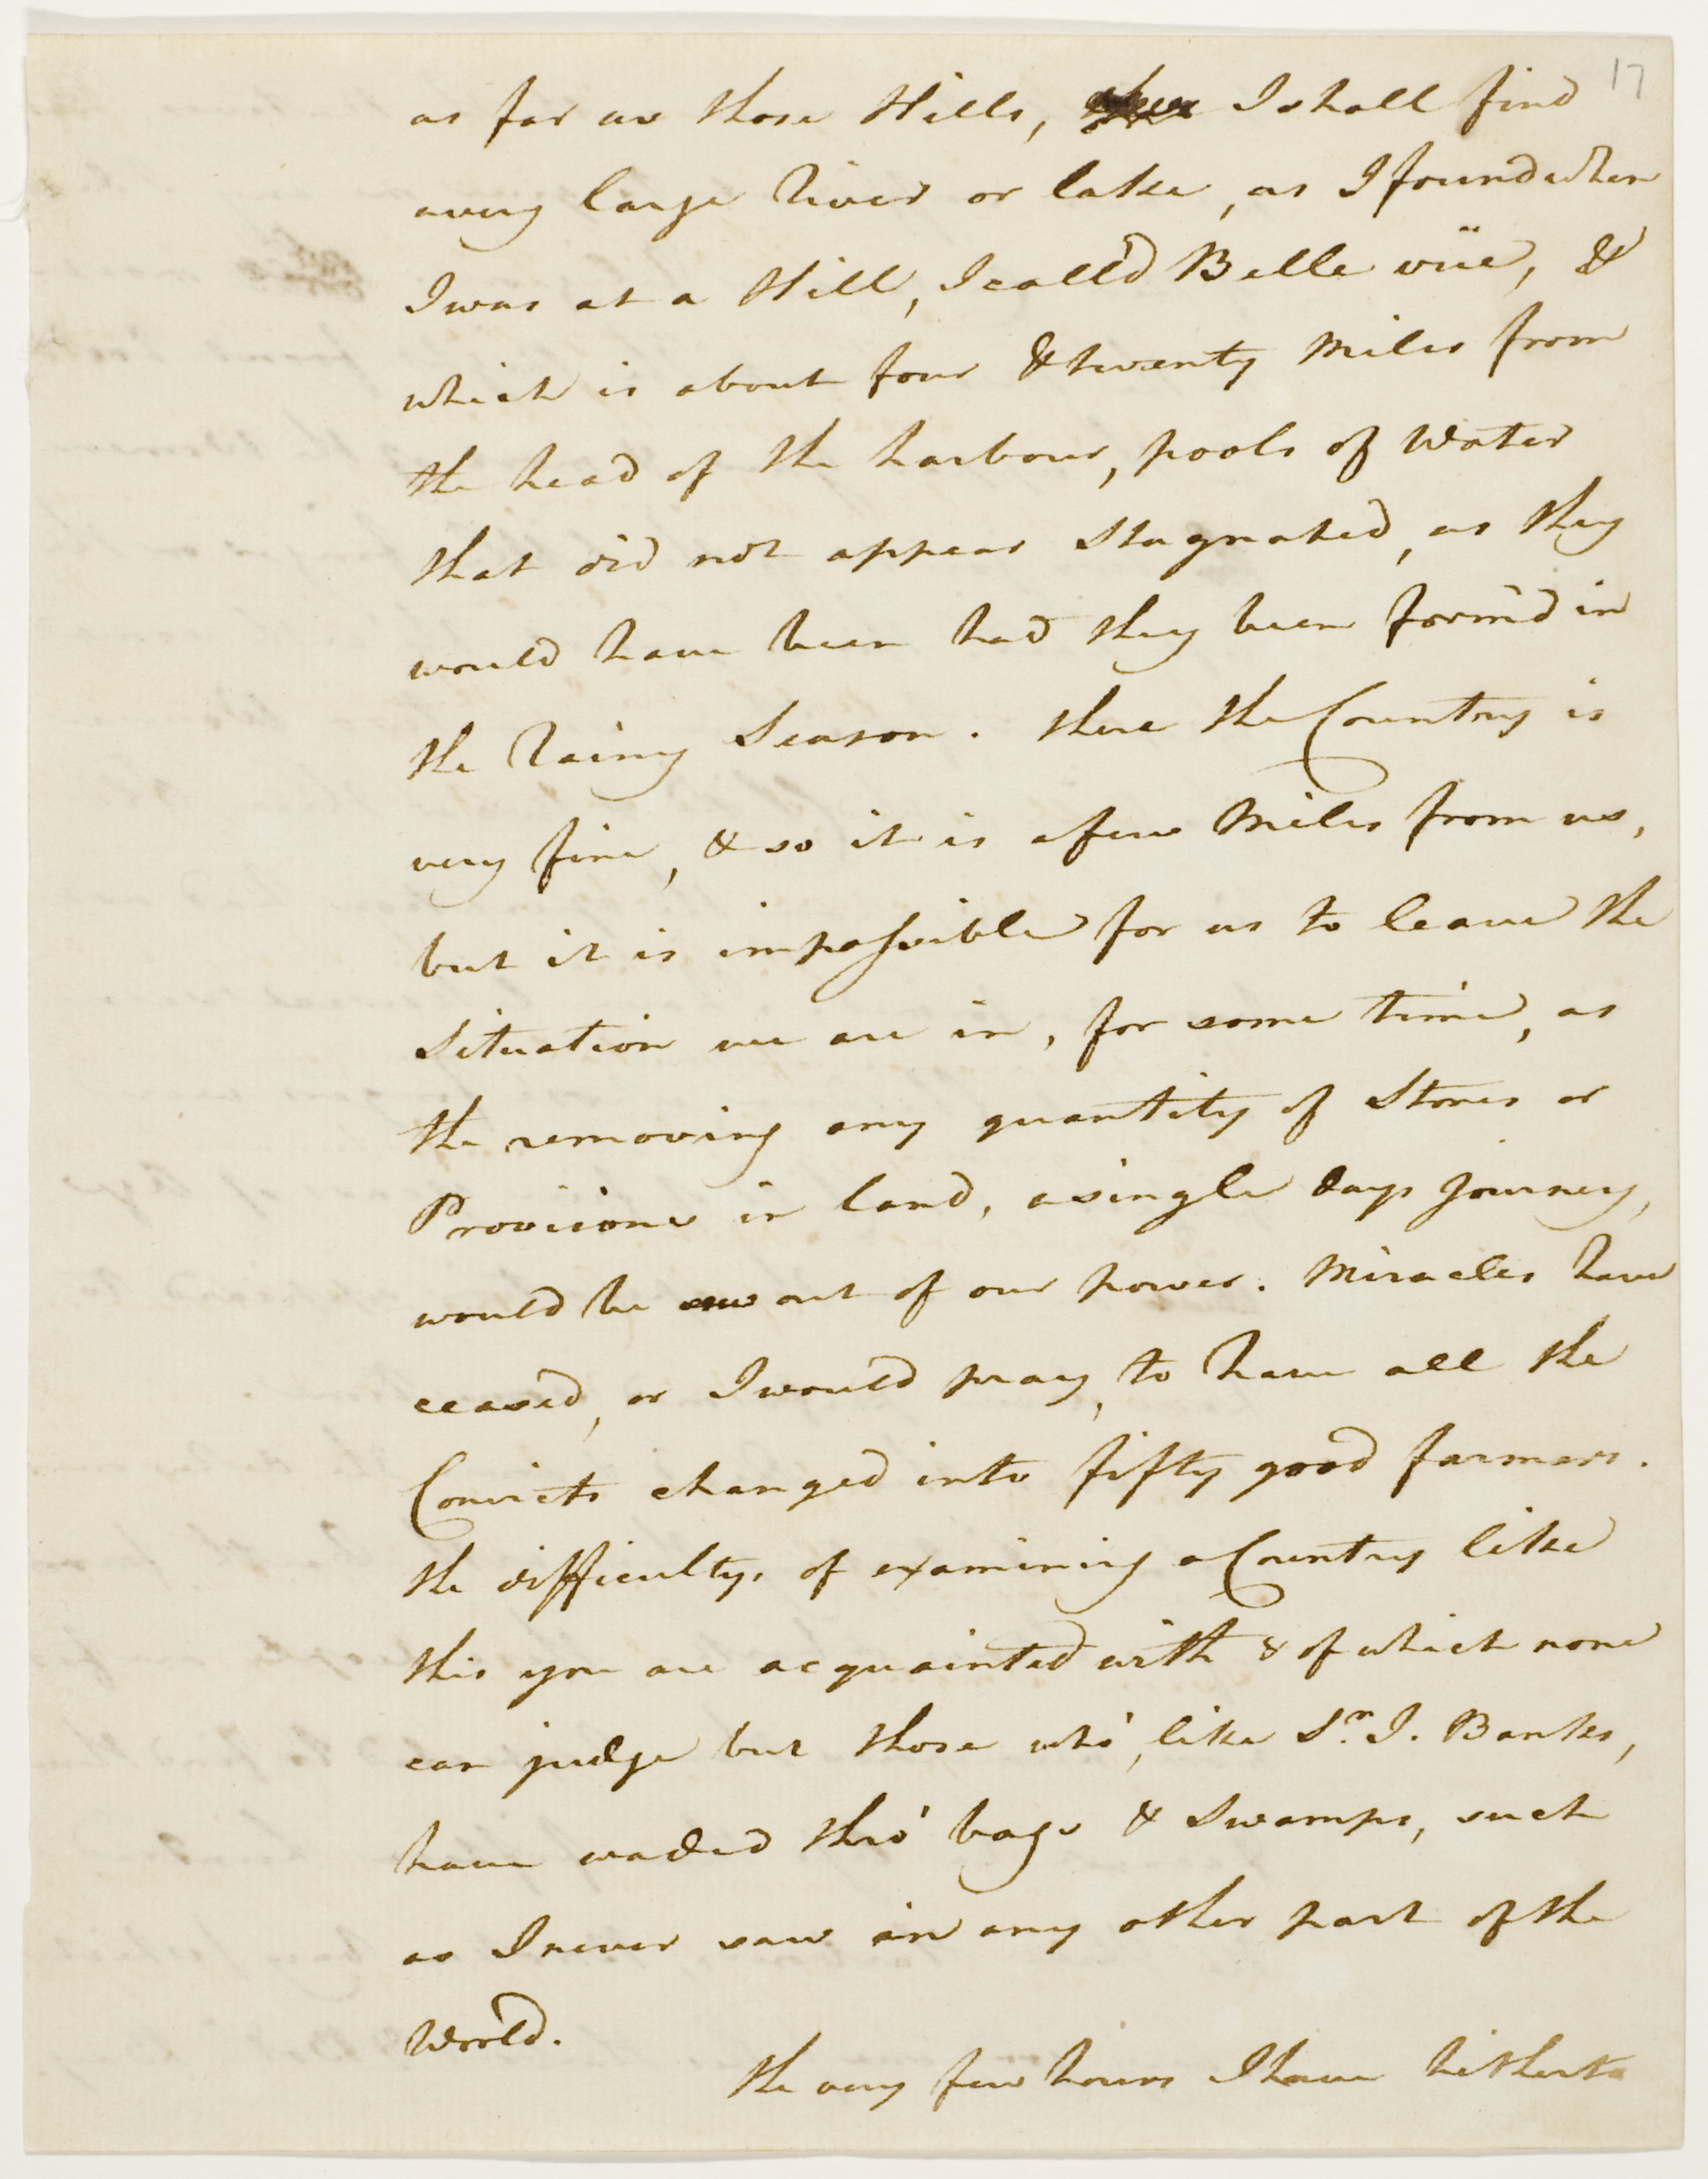 17
as far as those Hills, I shall find
a very large River or lake, as I found when
I was at a Hill, I call'd Belle vüe, &
which is about four & twenty Miles from
the head of the harbour, pools of Water
that did not appear Stagnated, as they
would have been had they been form'd in
the Rainy Season. there the Country is
very fine, & so it is a few Miles from us,
but it is impossible for us to leave the
Situation we are in, for some time, as
the removing any quantity of Stores or
Provisions in land, a single days Journey,
would be out of our power. Miracles have
ceased, or I would pray, to have all the
Convicts changed into fifty good farmers.
the difficulty, of examining a Country like
this you are acquainted with & of which none
can judge but those who', like Sr. J. Banks,
have waded thro' bogs & Swamps, such
as I never saw in any other part of the
World.
the very few hours I have hitherto